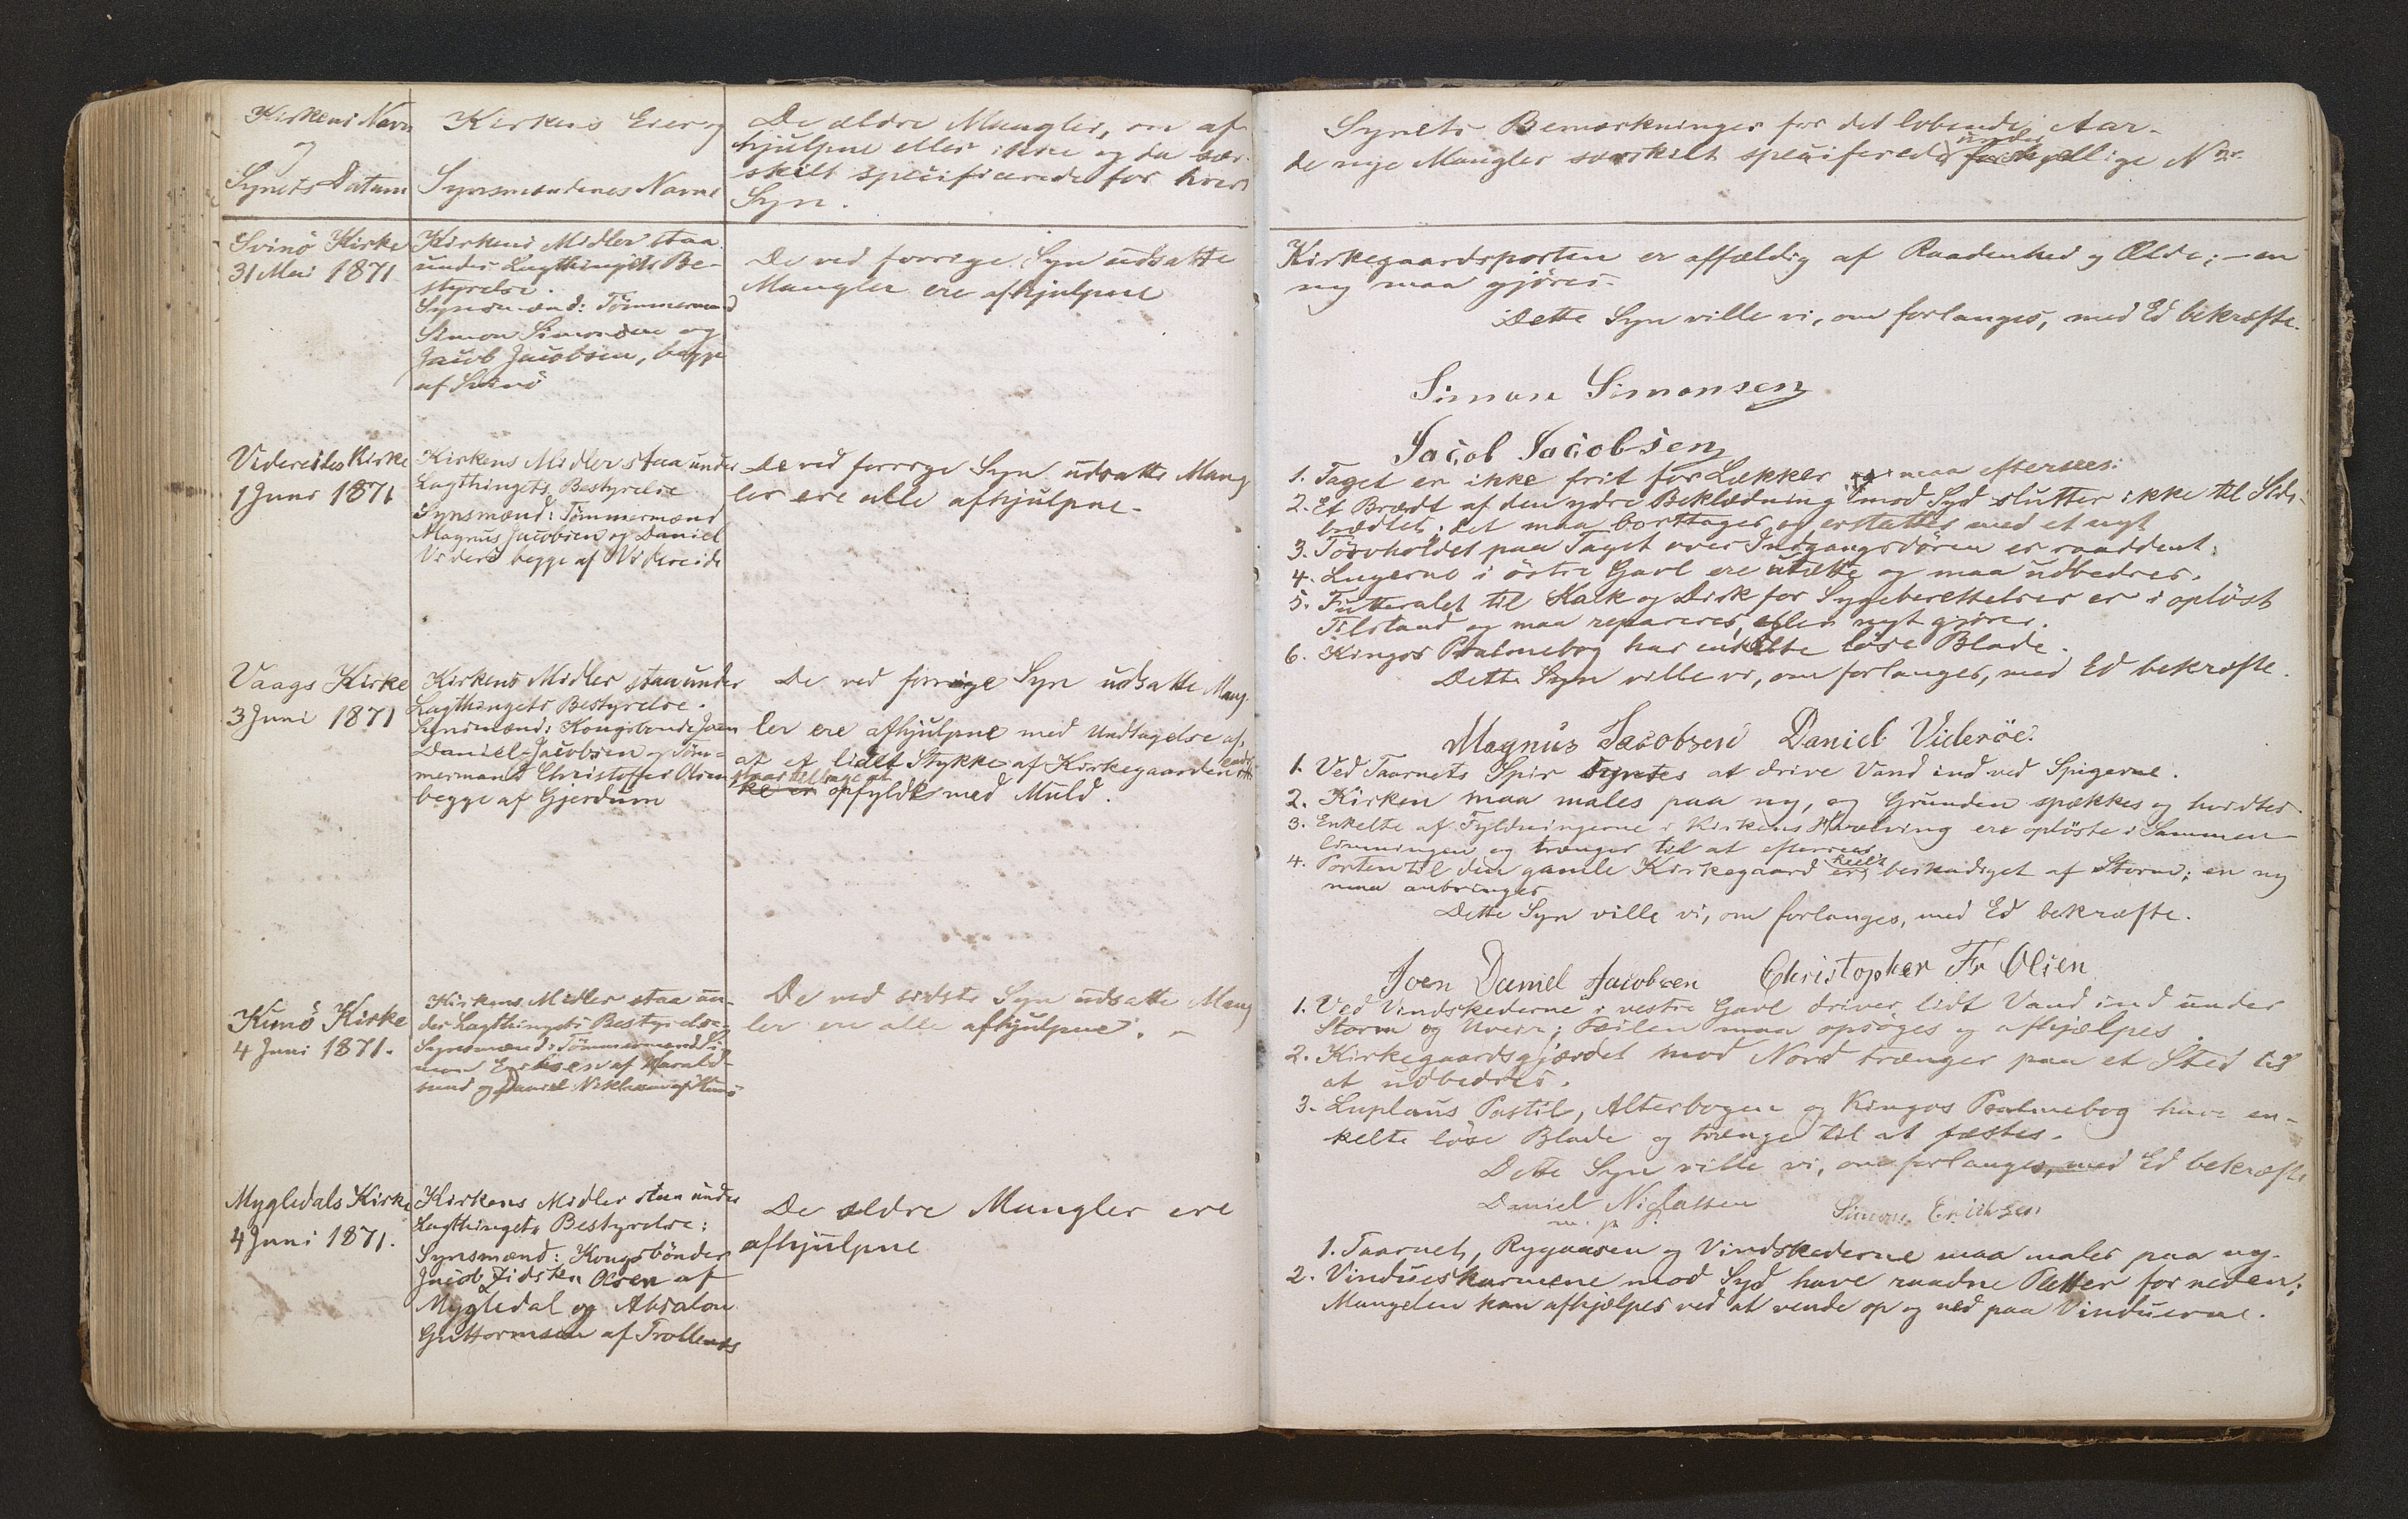 Kirkens Navn
og
Synets Datum
Kirkens Eier og
Synsmændenes Navne
De ældre Mangler, om af-
hjulpne eller ikke og da sær-
skilt specificerede for hvert
Syn.
Synets Bemærkninger for det løbende Aar.
under
de nye Mangler særskilt specificerede forskjellige Nre.
Svinö Kirke
31 Mai 1871
Kirkens Midler staa
under Lagthingets Be-
styrelse.
Synsmænd: Tömmermænd
Simon Simonsen og
Jacob Jacobsen, begge
af Svinö
De ved forrige Syn udsatte
Mangler ere afhjulpne
Kirkegaardsporten er affældig af Raadenhed og Ælde; – en
ny maa gjöres.
Dette Syn ville vi, om forlanges, med Ed bekræfte.
Simon Simonsen
Jacob Jacobsen
Videreides Kirke
1 Juni 1871
Kirkens Midler staa under
Lagthingets Bestyrelse
Synsmænd: Tömmermænd
Magnus Jacobsen og Daniel
Viderö begge af Videreide
De ved forrige Syn udsatte Mang
ler ere alle afhjulpne.
1. Taget er ikke frit for Lækker maa eftersees.
2. Et Brædt af den ydre Beklædning imod Syd slutter ikke til Side-
brædtet; det maa borttages og erstattes med et nyt
3. Törvholdet paa Taget over Indgangsdören er raaddent.
4. Lugerne i östre Gavl ere utætte og maa udbedres.
5. Futteralet til Kalk og Disk for Sygeberettelser er i oplöst
Tilstand og maa repareres, eller nyt gjöres.
6. Kingos Psalmebog har enkelte löse Blade.
Dette Syn ville vi, om forlanges, med Ed bekræfte.
Magnus Jacobsen Daniel Videröe.
Vaags Kirke
3 Juni 1871
Kirkens Midler staa under
Lagthingets Bestyrelse.
Synsmænd: Kongsbonde Joen
Daniel Jacobsen og Töm-
mermand Christoffer Olsen
begge af Gjerdum
De ved forrige Syn udsatte Mang-
ler ere afhjulpne med Undtagelse af,
at et lidet Stykke af Kirkegaarden
staar tilbage at
ke er opfyldt med Muld.
1. Ved Taarnets Spir syntes at drive Vand ind ved Spigerne.
2. Kirken maa males paa ny, og Grunden spækkes og hvidtes
3. Enkelte af Fyldningerne i Kirkens Hvælving ere oplöste i Sammen-
limningen og trænger til at efterseees.
heelt
4. Porten til den gamle Kirkegaard er beskadiget af Storm; en ny
maa anbringes
Dette Syn ville vi, om forlanges, med Ed bekræfte.
Joen Daniel Jacobsen Christopher Fr Olsen
Kunö Kirke
4 Juni 1871.
Kirkens Midler staa un-
der Lagthingets Bestyrelse
Synsmænd: Tömmermænd Si-
mon Eriksen af Harald-
sund og Daniel Niklassen af Kunö
De ved sidste Syn udsatte Mang
ler ere alle afhjulpne. –
1. Ved Vindskederne i vestre Gavl driver lidt Vand ind under
Storm og Uveir; Feilen maa opsöges og afhjælpes.
2. Kirkegaardsgjærdet mod Nord trænger paa et Sted til
at udbedres.
3. Luplaus Postil, Alterbogen og Kingos Psalmebog have en-
kelte löse Blade og trænge til at fæstes.
Dette Syn ville vi, om forlanges, med Ed bekræfte
Daniel Niglassen Simon Eriksen
m. p.
Mygledals Kirke
4 Juni 1871.
Kirkens Midler staa under
Lagthingets Bestyrelse:
Synsmænd: Kongsbönder
Jacob Olsen af
Mygledal og Absalon
Guttormsen af Trollenæs
De ældre Mangler ere
afhjulpne
1. Taarnet, Rygaasen og Vindskederne maa males paa ny.
2. Vindueskarmene mod Syd have raadne Pletter for neden;
Mangelen kan afhjælpes ved at vende op og ned paa Vinduerne.